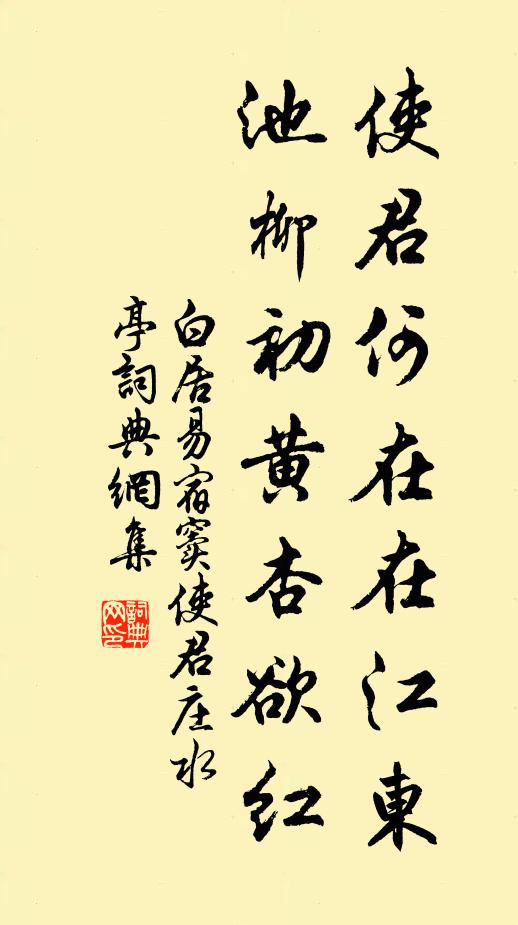 使君何在在江東
池柳初黃杏欲紅
白居易宿竇使君庄水
亭詞典網集
詞典
网印